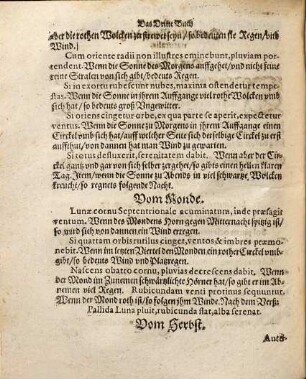 Das Dritte Buch
aber die rothen Wolcken zustrewet seyn / so bedeuten sie Regen / vnd
Wind.)
Cum oriente radii non illustres eminebunt, pluviam por-
tendent. Wenn die Sonne des Morgens auffgehet / vnd nicht seine
rente Stralen von sich gibt / bedeuts Regen.
Si in exortu rubescunt nubes, maxima ostendetur tempe-
stas. Wenn die Sonne in ihrem Auffgange viel rothe Wolcken vmb
sich hat / so bedeuts groß Vngewitter.
Si orientē cingetur orbe, ex qua parte se aperit, expectetur
ventus. Wenn die Sonne zu Morgens in ihrem Auffgange einen
Circkel vmb sich hat / auff welcher Seite sich derselbige Circkel zu erst
auffthut / von dannen hat man Wind zu gewarten.
Si totus defluxerit, serenitatem dabit. Wenn aber der Cir-
ckel gantz vnd gar von sich selber zergehet / so gibts einen hellen klaren
Tag. Item / wenn die Sonne zu Abends in viel schwartze Wolcken
kreucht / so regnets folgende Nacht.
Vom Monde.
Lunæ cornu Septentrionale acuminatum, inde præsagit
ventum. Wenn des Monden Horn gegen Mitternacht spitzig ist /
so wird sich von dannen ein Wind erregen.
Si quartam orbis rutilus cinget, ventos & imbres præmo-
nebit. Wenn im letzten Viertel den Monden ein rother Circkel vmb-
gibt / so bedeuts Wind vnd Platzregen.
Nascens obatro cornu, pluvias decrescens dabit. Wenn
der Mond im Zunemen schwärtzlichte Hörner hat / so gibt er im Ab-
nemen viel Regen. Rubicundam venti protinus sequuntur.
Wenn der Mond roth ist / so folgen jhm Winde. Nach dem Verß:
Pallida Luna pluit, rubicunda flat, alba serenat.
Vom Herbst.
Auct-